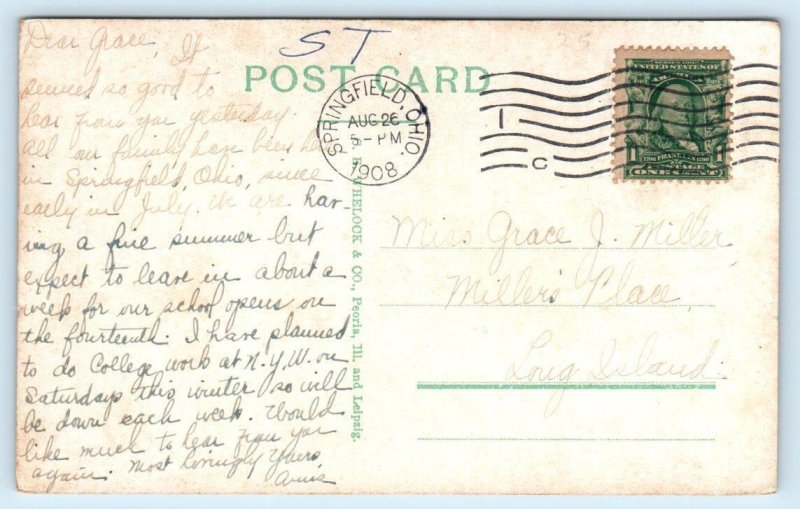 ST
25
POST CARD
SPRINGFIELD, OHIO.
AUG 26
5-PM
1908
1
C
SERIES 1902
UNITED STATES OF
AMERICA
1 1706 FRANKLIN 1790 1
POSTAGE
ONE CENT
Dear Grace, It
seemed so good to
hear from you yesterday.
All our family have been here
in Springfield, Ohio, since
early in July. We are hav-
ing a fine summer but
expect to leave in about a
week for our school opens on
the fourteenth. I have planned
to do College work at N.Y.U. on
Saturdays this winter so will
be down each week. Would
like much to hear from you
again. Most lovingly Yours
WHELOCK & CO., Peoria, Ill. and Leipzig.
Miss Grace J. Miller
Miller's Place
Long Island